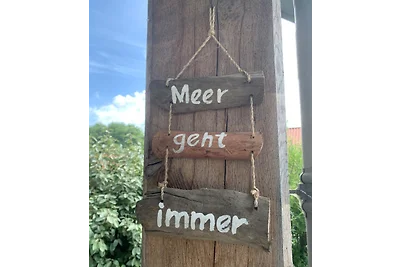 Meer
geht
immer